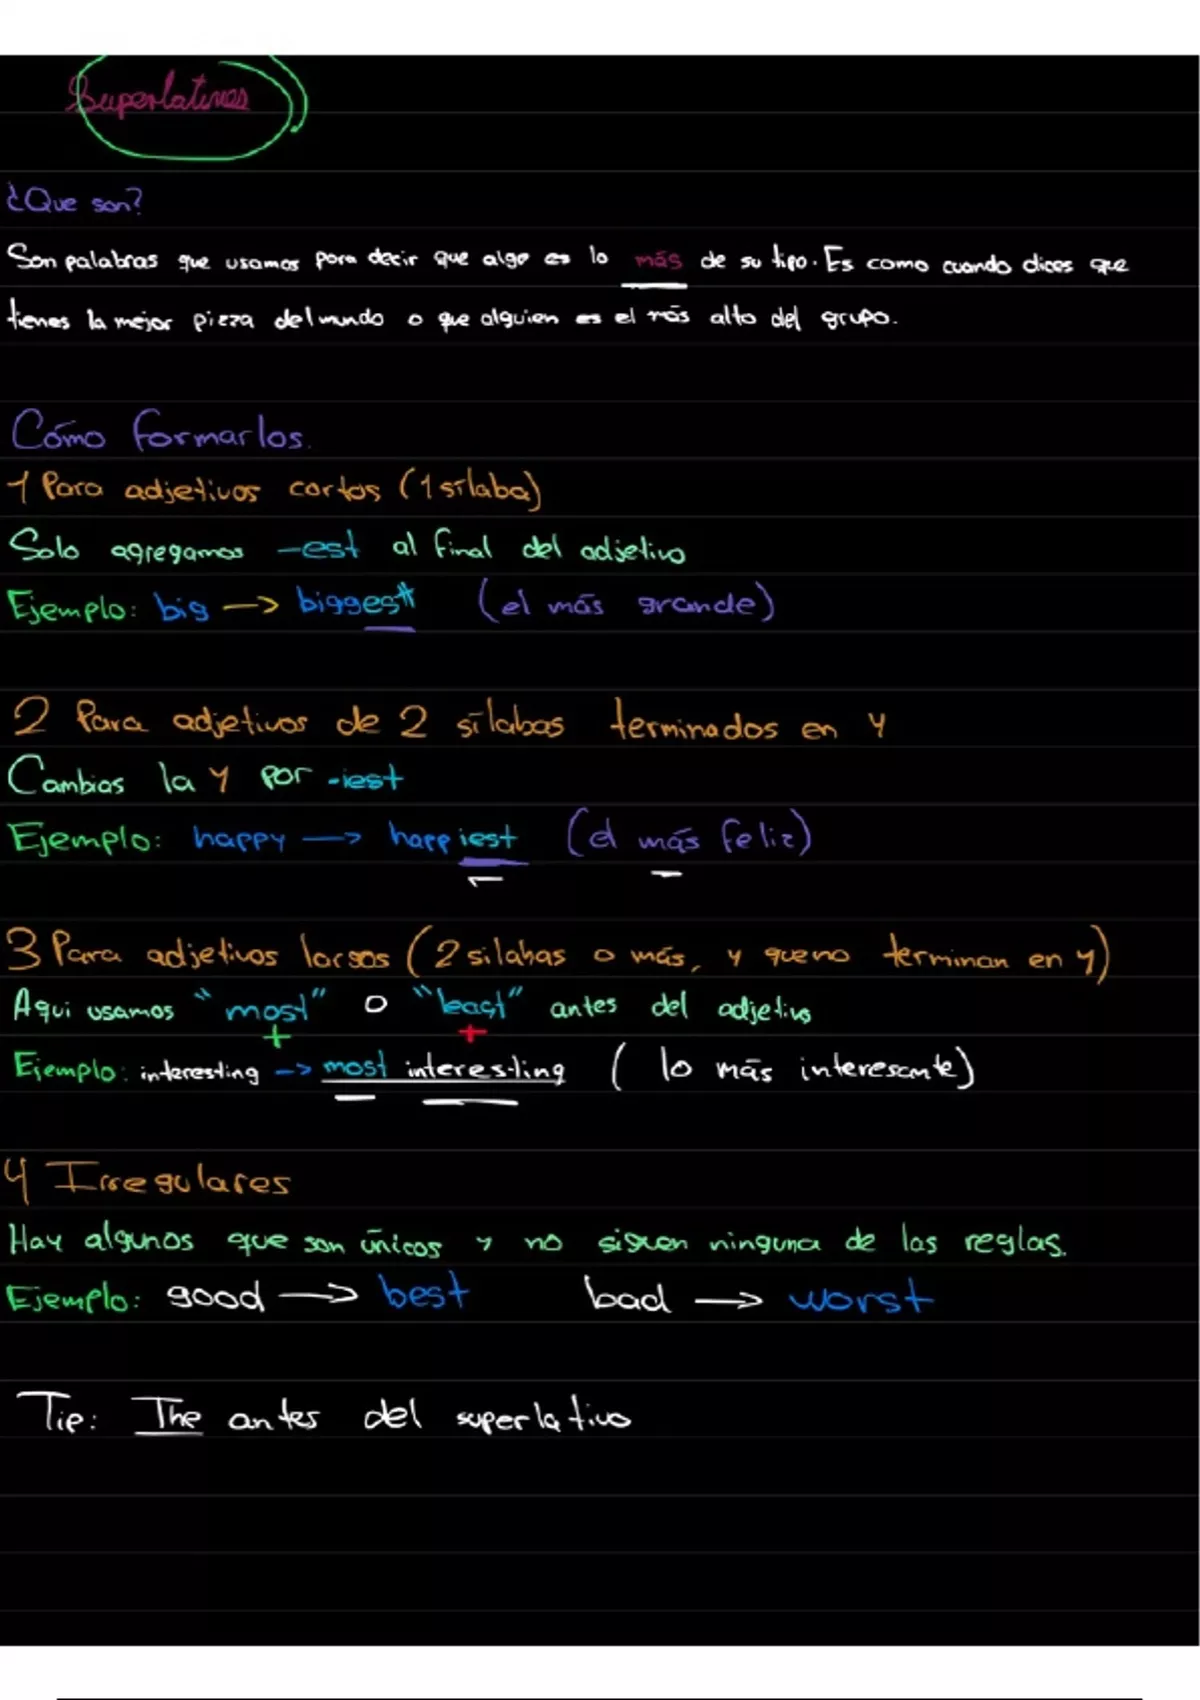 Superlativos
¿Que son?
Son palabras que usamos para decir que algo es lo más de su tipo. Es como cuando dices que
tienes la mejor pizza del mundo o que alguien es el más alto del grupo.
Cómo formarlos.
1 Para adjetivos cortos (1 sílaba)
Solo agregamos -est al final del adjetivo
Ejemplo: big -> biggest (el más grande)
2 Para adjetivos de 2 sílabas terminados en y
Cambias la y por -iest
Ejemplo: happy -> happiest (el más feliz)
3 Para adjetivos largos (2 silabas o más, y que no terminan en y)
Aqui usamos "most" o "least" antes del adjetivo
+ +
Ejemplo: interesting -> most interesting (lo más interesante)
4 Irregulares
Hay algunos que son únicos y no siguen ninguna de las reglas.
Ejemplo: good -> best bad -> worst
Tip: The antes del superlativo